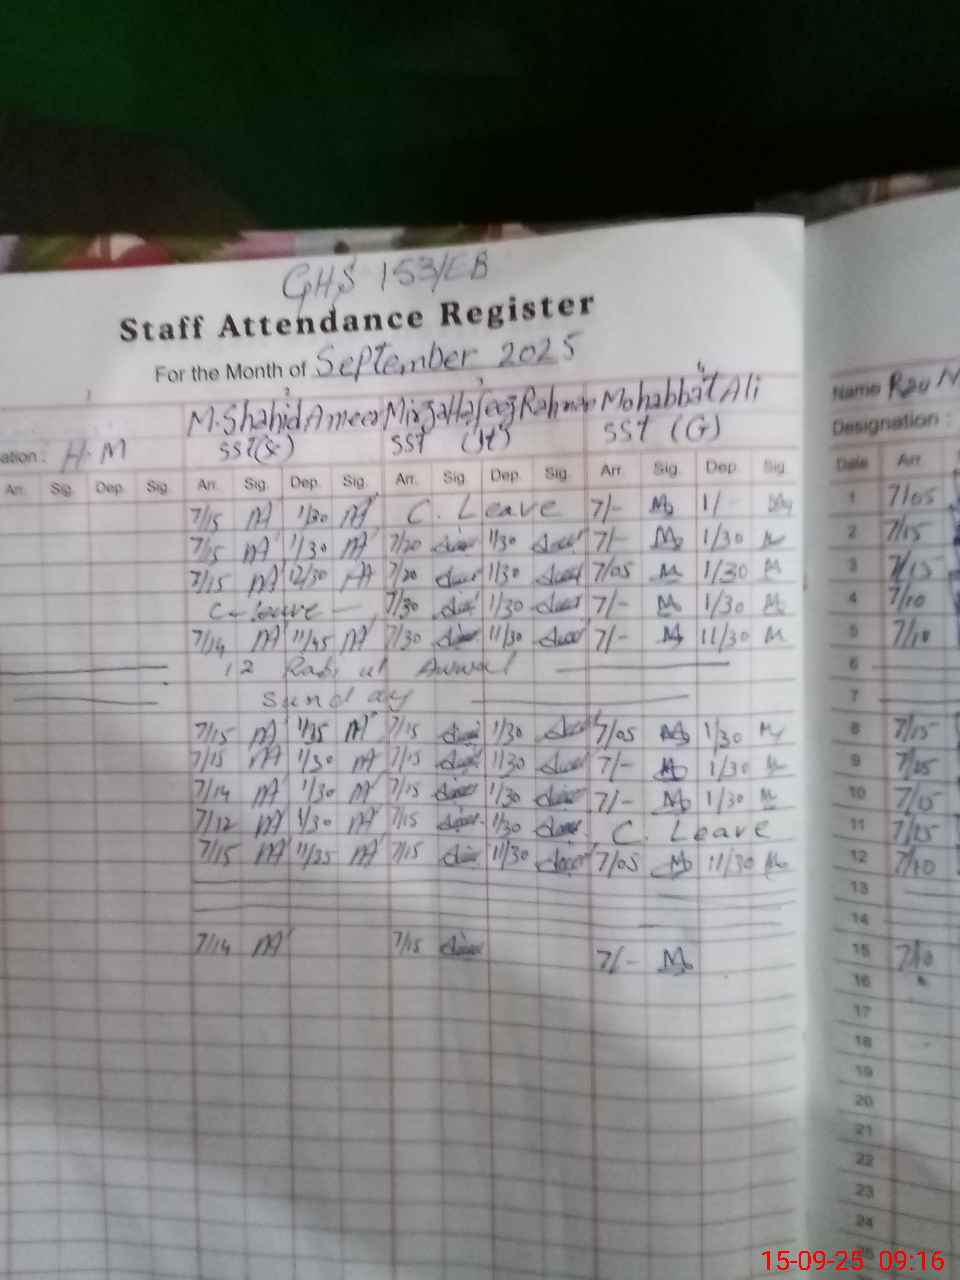 GHS 153/EB
Staff Attendance Register
For the Month of September 2025
1 2 3 4
M. Shahid Ameer Mirza Hafeez Rahman Mohabbat Ali Name Rau
ation: H.M SST(Sc) SST (It) SST (G) Designation :
Arr. Sig. Dep. Sig. Arr. Sig. Dep. Sig. Arr. Sig. Dep. Sig. Arr. Sig. Dep. Sig. Date Arr.
7/15 1/30 C. Leave 7/- M 1/- 1 7/05
7/15 1/30 7/20 1/30 7/- M 1/30 M 2 7/15
7/15 12/30 7/20 1/30 7/05 M 1/30 M 3 7/15
C-leave — 7/30 1/30 7/- M 1/30 M 4 7/10
7/14 11/45 7/30 11/30 7/- M 11/30 M 5 7/10
12 Rabi ul Awwal 6
Sunday 7
7/15 1/35 7/15 1/30 7/05 1/30 8 7/15
7/15 1/30 7/15 1/30 7/- 1/30 9 7/25
7/14 1/30 7/15 1/30 7/- 1/30 10 7/15
7/12 1/30 7/15 1/30 C. Leave 11 7/25
7/15 11/25 7/15 11/30 7/05 11/30 12 7/10
13
14
7/14 7/15 7/- M 15 7/10
16
17
18
19
20
21
22
23
24
25
15-09-25 09:16